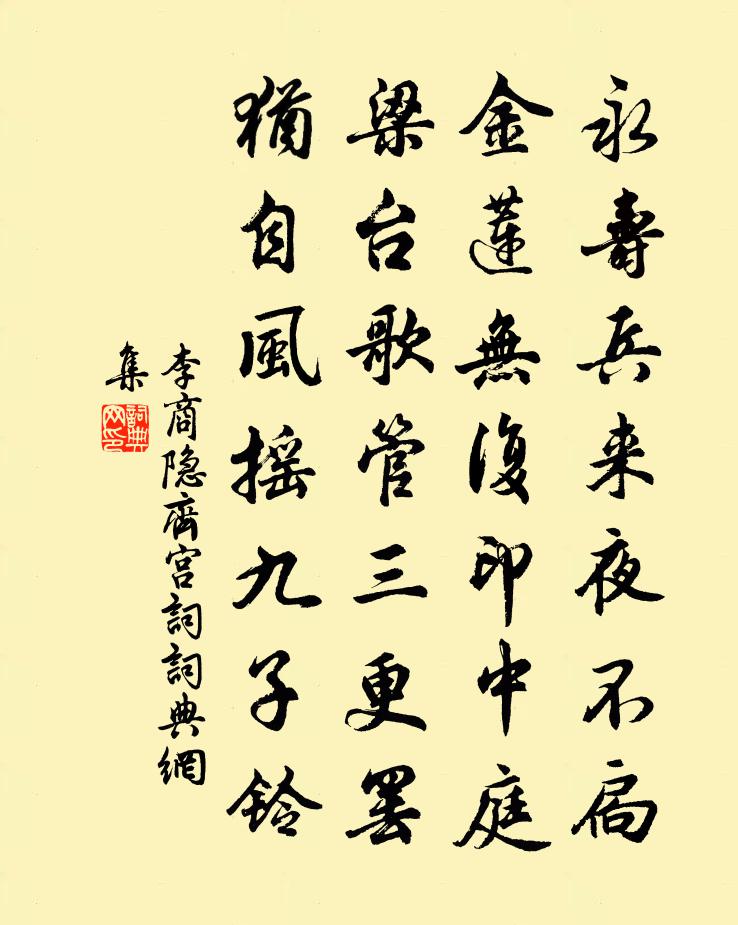 永壽兵来夜不扃
金蓮無復印中庭
梁台歌管三更罷
猶自風摇九子鈴
李商隐齊宫詞詞典網
集
詞典
网印